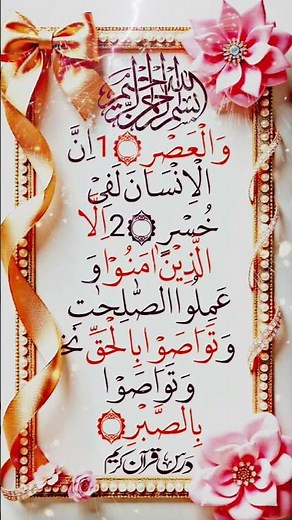 بسم الله الرحمن الرحيم
وَالْعَصْرِ ۝1 اِنَّ
الْاِنْسَانَ لَفِیْ
خُسْرٍ ۝2 اِلَّا
الَّذِیْنَ اٰمَنُوْا وَ
عَمِلُوا الصّٰلِحٰتِ
وَ تَوَاصَوْا بِالْحَقِّ
وَ تَوَاصَوْا
بِالصَّبْرِ ۝
درس قرآن کریم